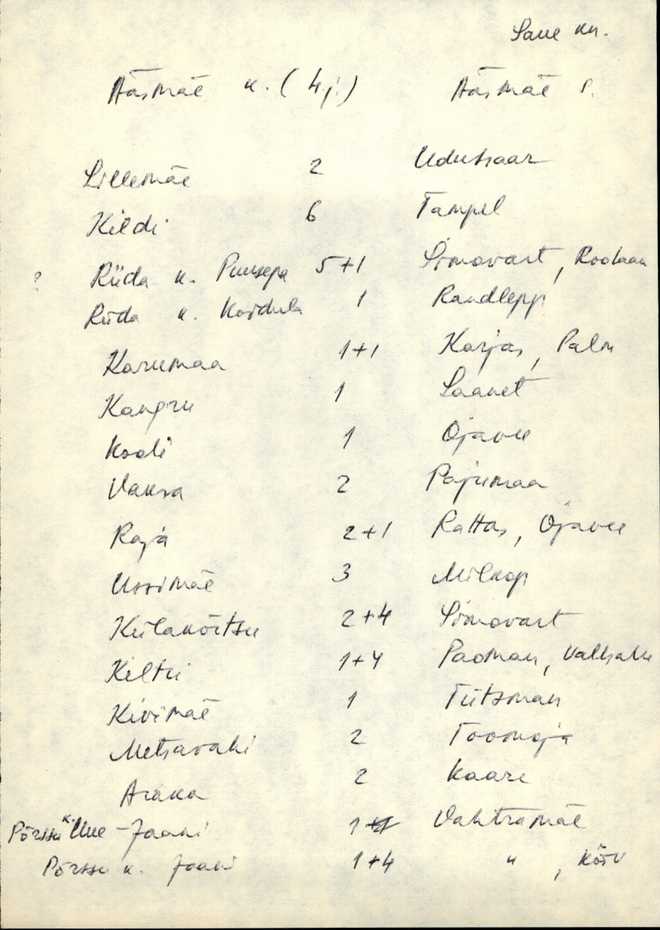 Saue kn.
Ääsmäe k. (4j) Ääsmäe P.
Lillemäe 2 Udutsaar
Kildi 6 Tampel
? Rüda k. Puusepa 5+1 Sinovart, Roolaan
Rüda k. Koidula 1 Randlepp
Karumaa 1+1 Karjas, Palm
Kangru 1 Saanet
Koodi 1 Ojavee
Vaksa 2 Pajumaa
Raja 2+1 Rattas, Ojavee
Ussimäe 3 Milkop
Keilakõrtsu 2+4 Sinovart
Keltri 1+4 Padman,
Kivimäe 1 Tiitsman
Metsavahi 2 Toomoja
2 Kaare
Põrssu k. Uue-Jaani 1 Vahtramäe
Põrssu k. Jaani 1+4 " , Kõiv